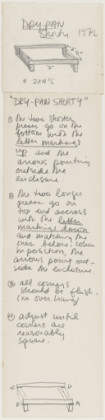 DRY PAN
SHORTY
"DRY-PAN SHORTY"
① the two shorter
pieces go on the
bottom with the
letter markings
up and the
arrows pointing
outside the
enclosure
② the two longer
pieces go on
top and across
with the letter
markings down
and matching the
ones below. When
in position, the
arrows point out-
side the enclosure
③ all corners
should be flush.
(no over hang)
④ adjust until
corners are
reasonably
square.